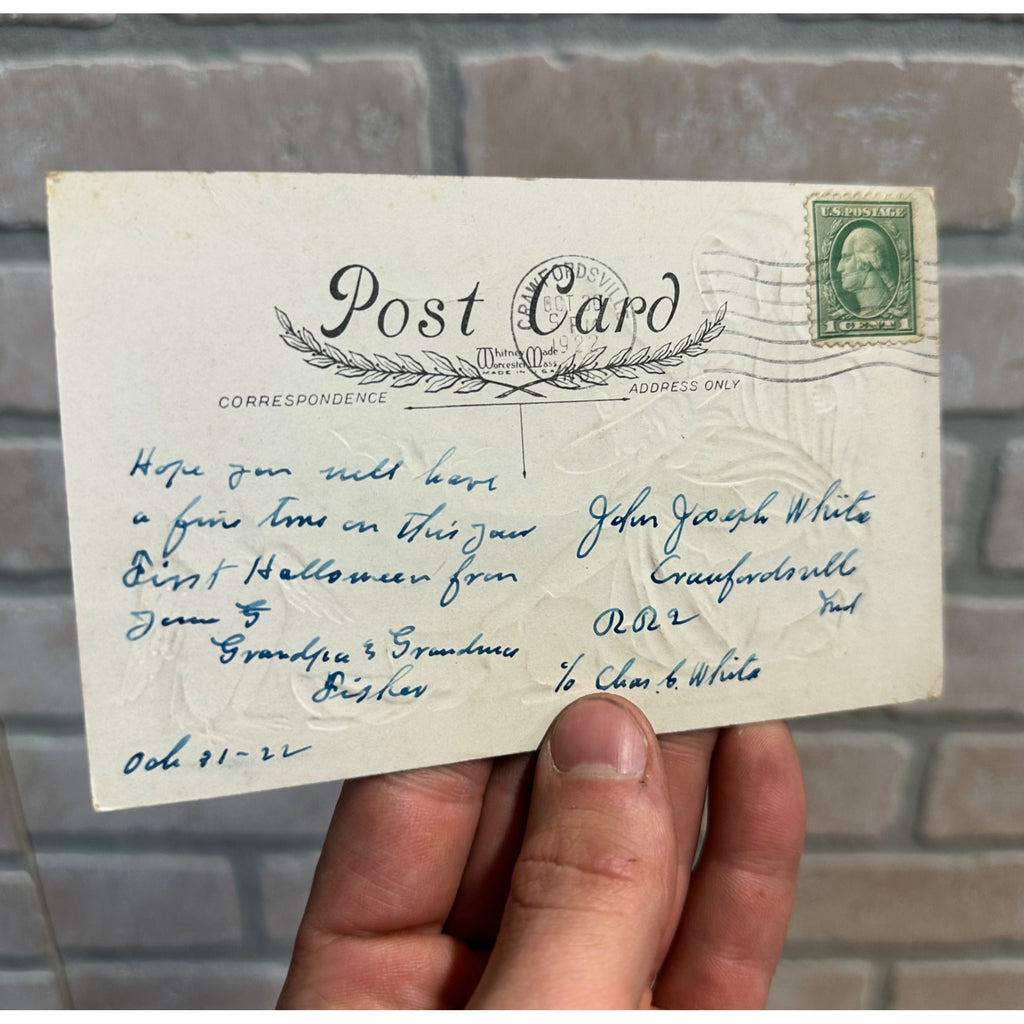 U.S. POSTAGE
1 CENT 1
Post Card
CRAWFORDSVILLE
OCT 30
1922
Whitney Made
Worcester Mass
MADE IN U.S.A.
CORRESPONDENCE
ADDRESS ONLY
Hope you will have
a fine time on this your
First Halloween from
your G
Grandpa & Grandma
Fisher
Oct 31-22
John Joseph White
Crawfordsville
Ind
RR2
c/o Chas. C. White